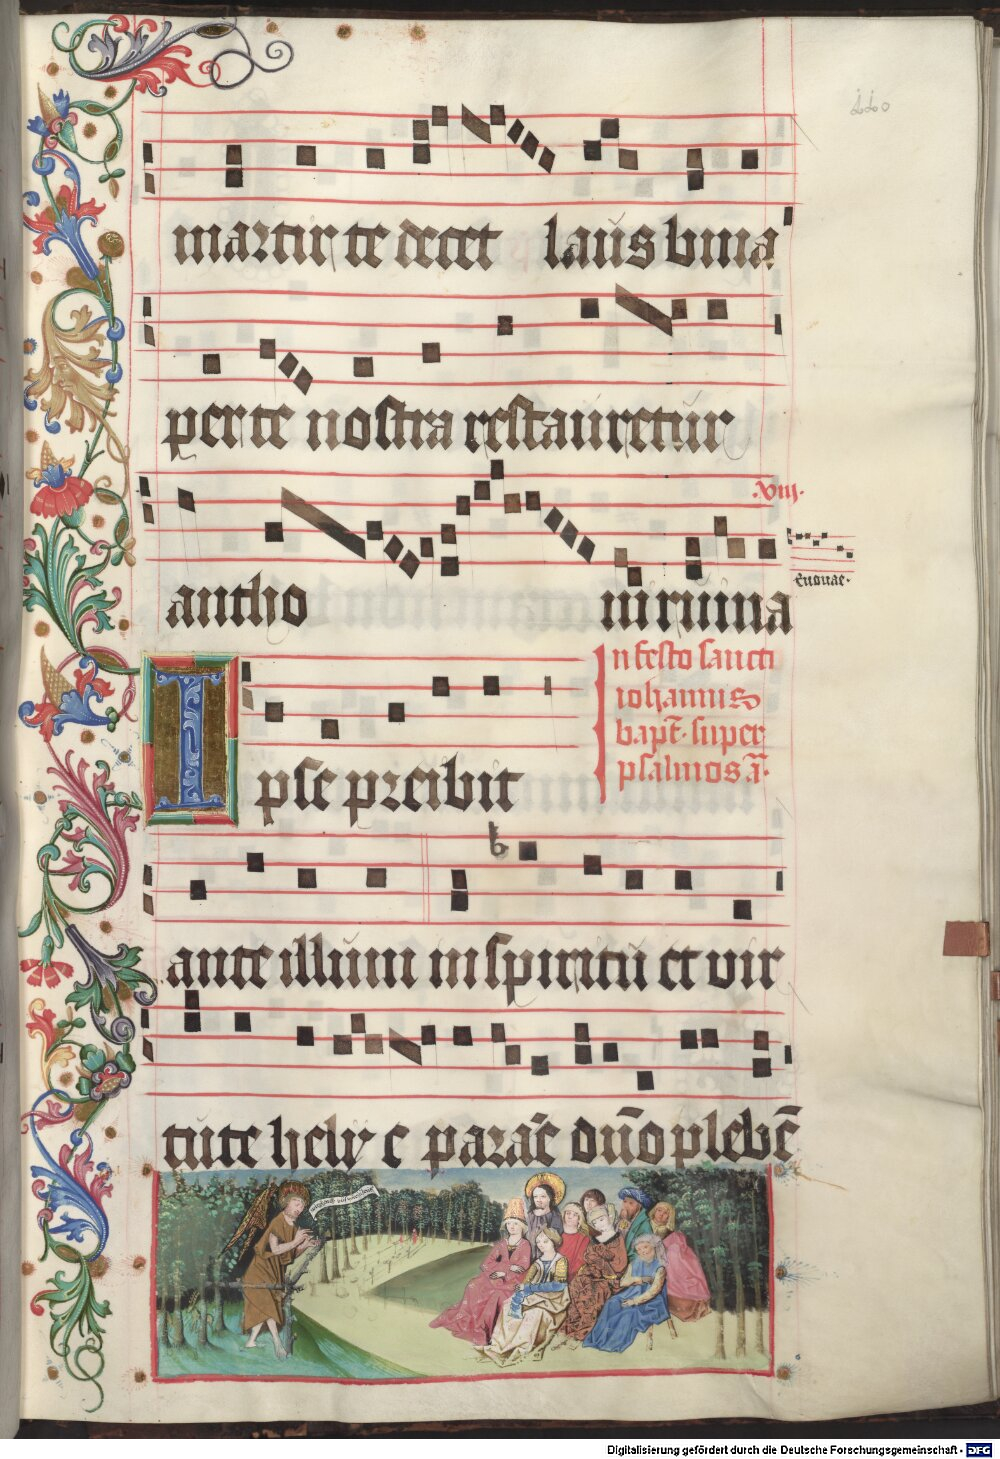 110
martir te decet laus vnna
per te nostra restauretur
antho
ni ruina
.viii.
Euouae.
In festo sancti
iohannis
bapt̄. super
psalmos a̅.
Ipse preibit
ante illum in spiritu et vir
tute hely e parar̄e dn̄o plebē
Digitalisierung gefördert durch die Deutsche Forschungsgemeinschaft - DFG